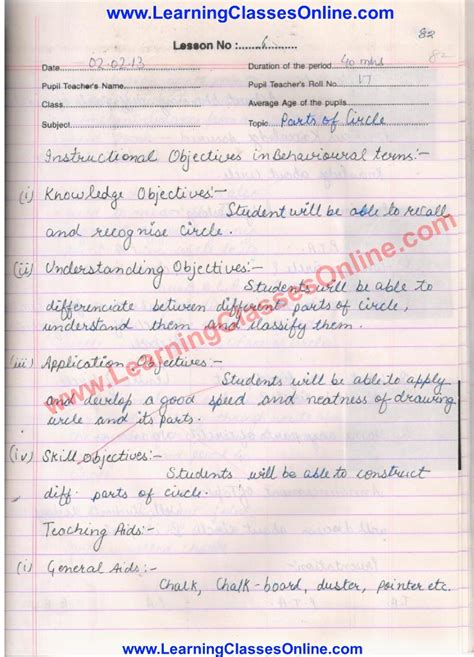 www.LearningClassesOnline.com
82
82
Lesson No :........6..........
Date......02.02.13...... Duration of the period...40 mins
Pupil Teacher's Name.................... Pupil Teacher's Roll No.....17......
Class.................... Average Age of the pupils....................
Subject.................... Topic...Parts of Circle
Instructional Objectives in Behavioural terms:-
(i) Knowledge Objectives:-
Student will be able to recall
and recognise circle.
(ii) Understanding Objectives:-
Students will be able to
differenciate between different parts of circle,
understand them and classify them.
(iii) Application Objectives:-
Students will be able to apply
and develop a good speed and neatness of drawing
circle and its parts.
(iv) Skill Objectives:-
Students will be able to construct
diff. parts of circle.
Teaching Aids:-
(i) General Aids:-
Chalk, Chalk-board, duster, pointer etc.
www.LearningClassesOnline.com
www.LearningClassesOnline.com